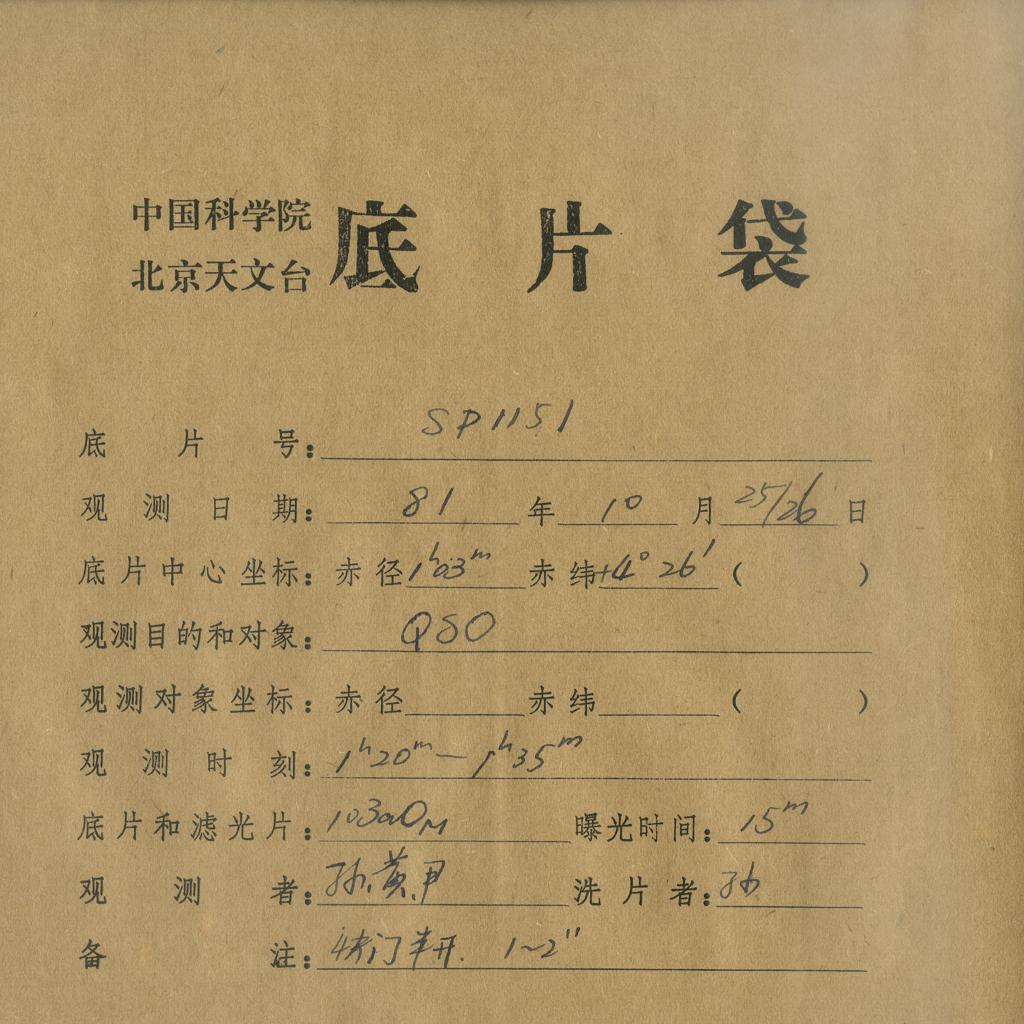 中国科学院
北京天文台
底片袋
底片号: SP1151
观测日期: 81 年 10 月 25/26 日
底片中心坐标: 赤径 1h03m 赤纬 +4° 26′ ( )
观测目的和对象: QSO
观测对象坐标: 赤径 赤纬 ( )
观测时刻: 1h20m — 1h35m
底片和滤光片: 103aO 曝光时间: 15m
观测者: 孙、黄、 洗片者: 孙
备注: 快门半开. 1~2″